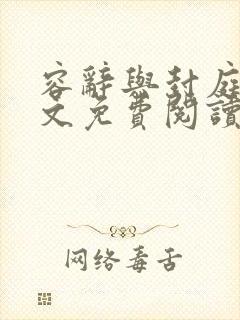 容辭與封庭
文免費閱讀
网络毒舌